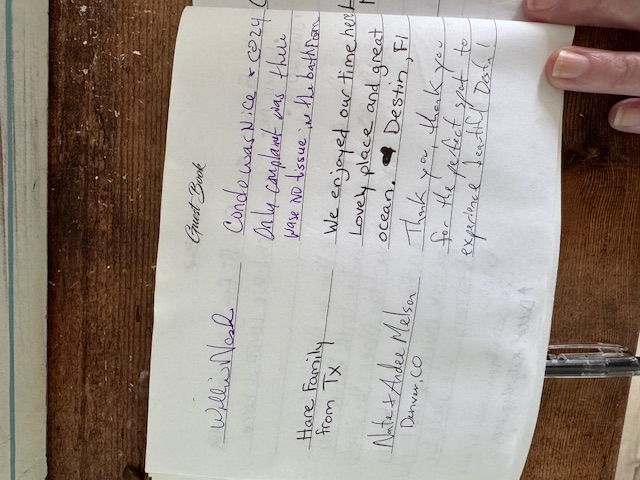 Guest Book
Willie Nash
Condo was Nice & cozy
Only complaint was there
was no tissue in the bathroom
Hare Family
from TX
We enjoyed our time here!
Lovely place and great
ocean. Destin, Fl
Nate & Ardee Melson
Denver, CO
Thank you, thank you
for the perfect spot to
experience beautiful Destin!